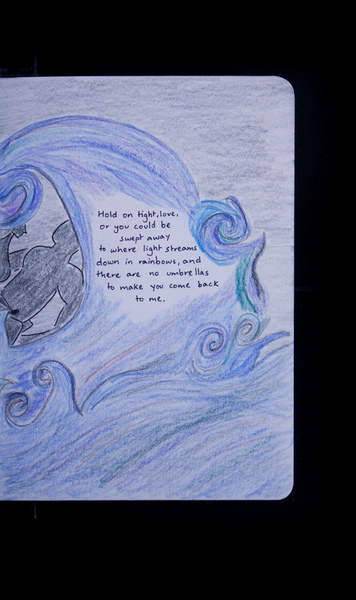 Hold on tight, love,
or you could be
swept away
to where light streams
down in rainbows, and
there are no umbrellas
to make you come back
to me.